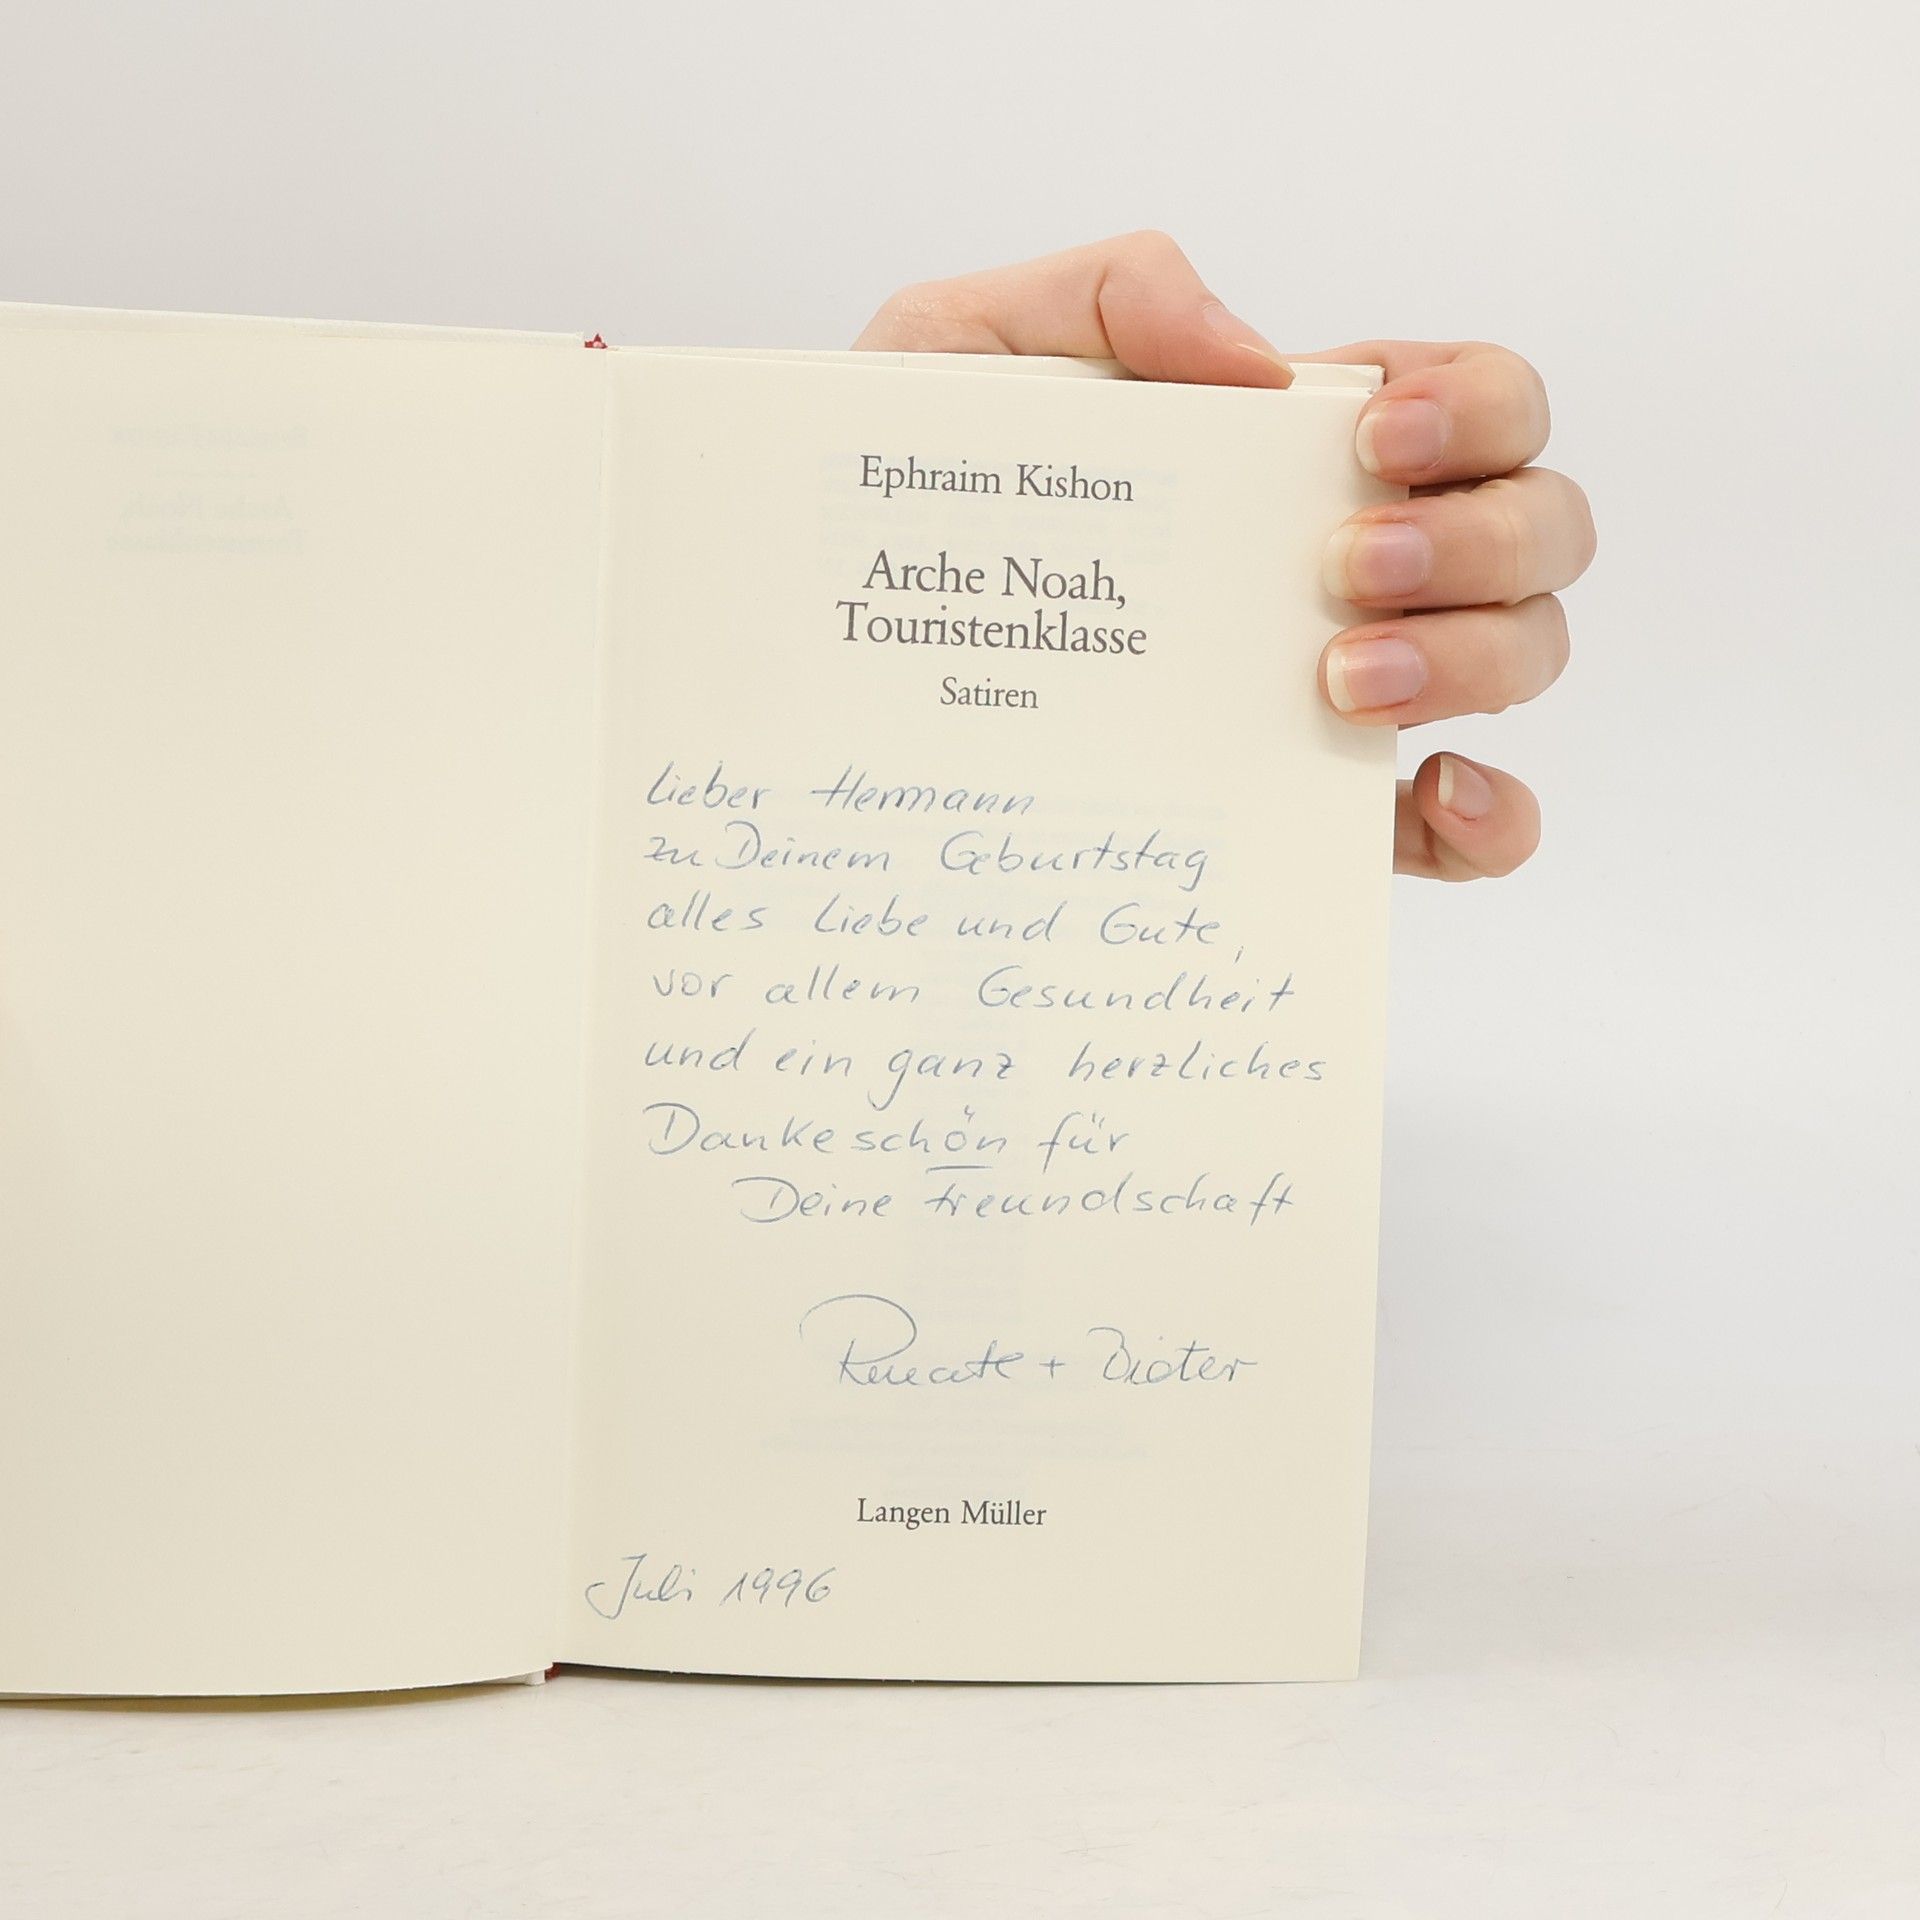 Ephraim Kishon
Arche Noah,
Touristenklasse
Satiren
Lieber Hermann
zu Deinem Geburtstag
alles Liebe und Gute,
vor allem Gesundheit
und ein ganz herzliches
Dankeschön für
Deine Freundschaft
Renate + Dieter
Langen Müller
Juli 1996